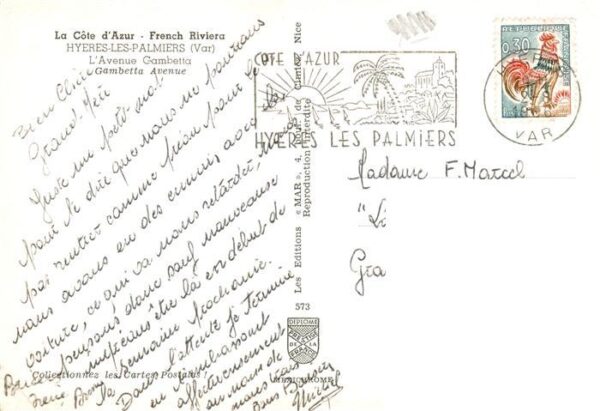 La Côte d'Azur - French Riviera
HYERES-LES-PALMIERS (Var)
L'Avenue Gambetta
Gambetta Avenue
Bien Chère
Grand-Mère
Juste un petit mot
pour te dire que nous ne pourrons
pas rentrer comme prévu pour le
nous avons eu des ennuis avec la
voiture, ce qui va nous retarder,
pensons donc sauf mauvaise
être là en début de
la semaine prochaine.
Dans l'attente je termine
en t'embrassant
affectueusement
au nom de
nous tous
Michel
Bons Baisers
Collectionnez les Cartes Postales !
Les Editions « MAR », 4,
Reproduction interdite
Nice
573
DIPLOME
PRESTIGE
DE LA
FRANCE
MEXICHROME
COTE D'AZUR
HYERES LES PALMIERS
0,30
VAR
Madame F. Marcel
"Li
Gra